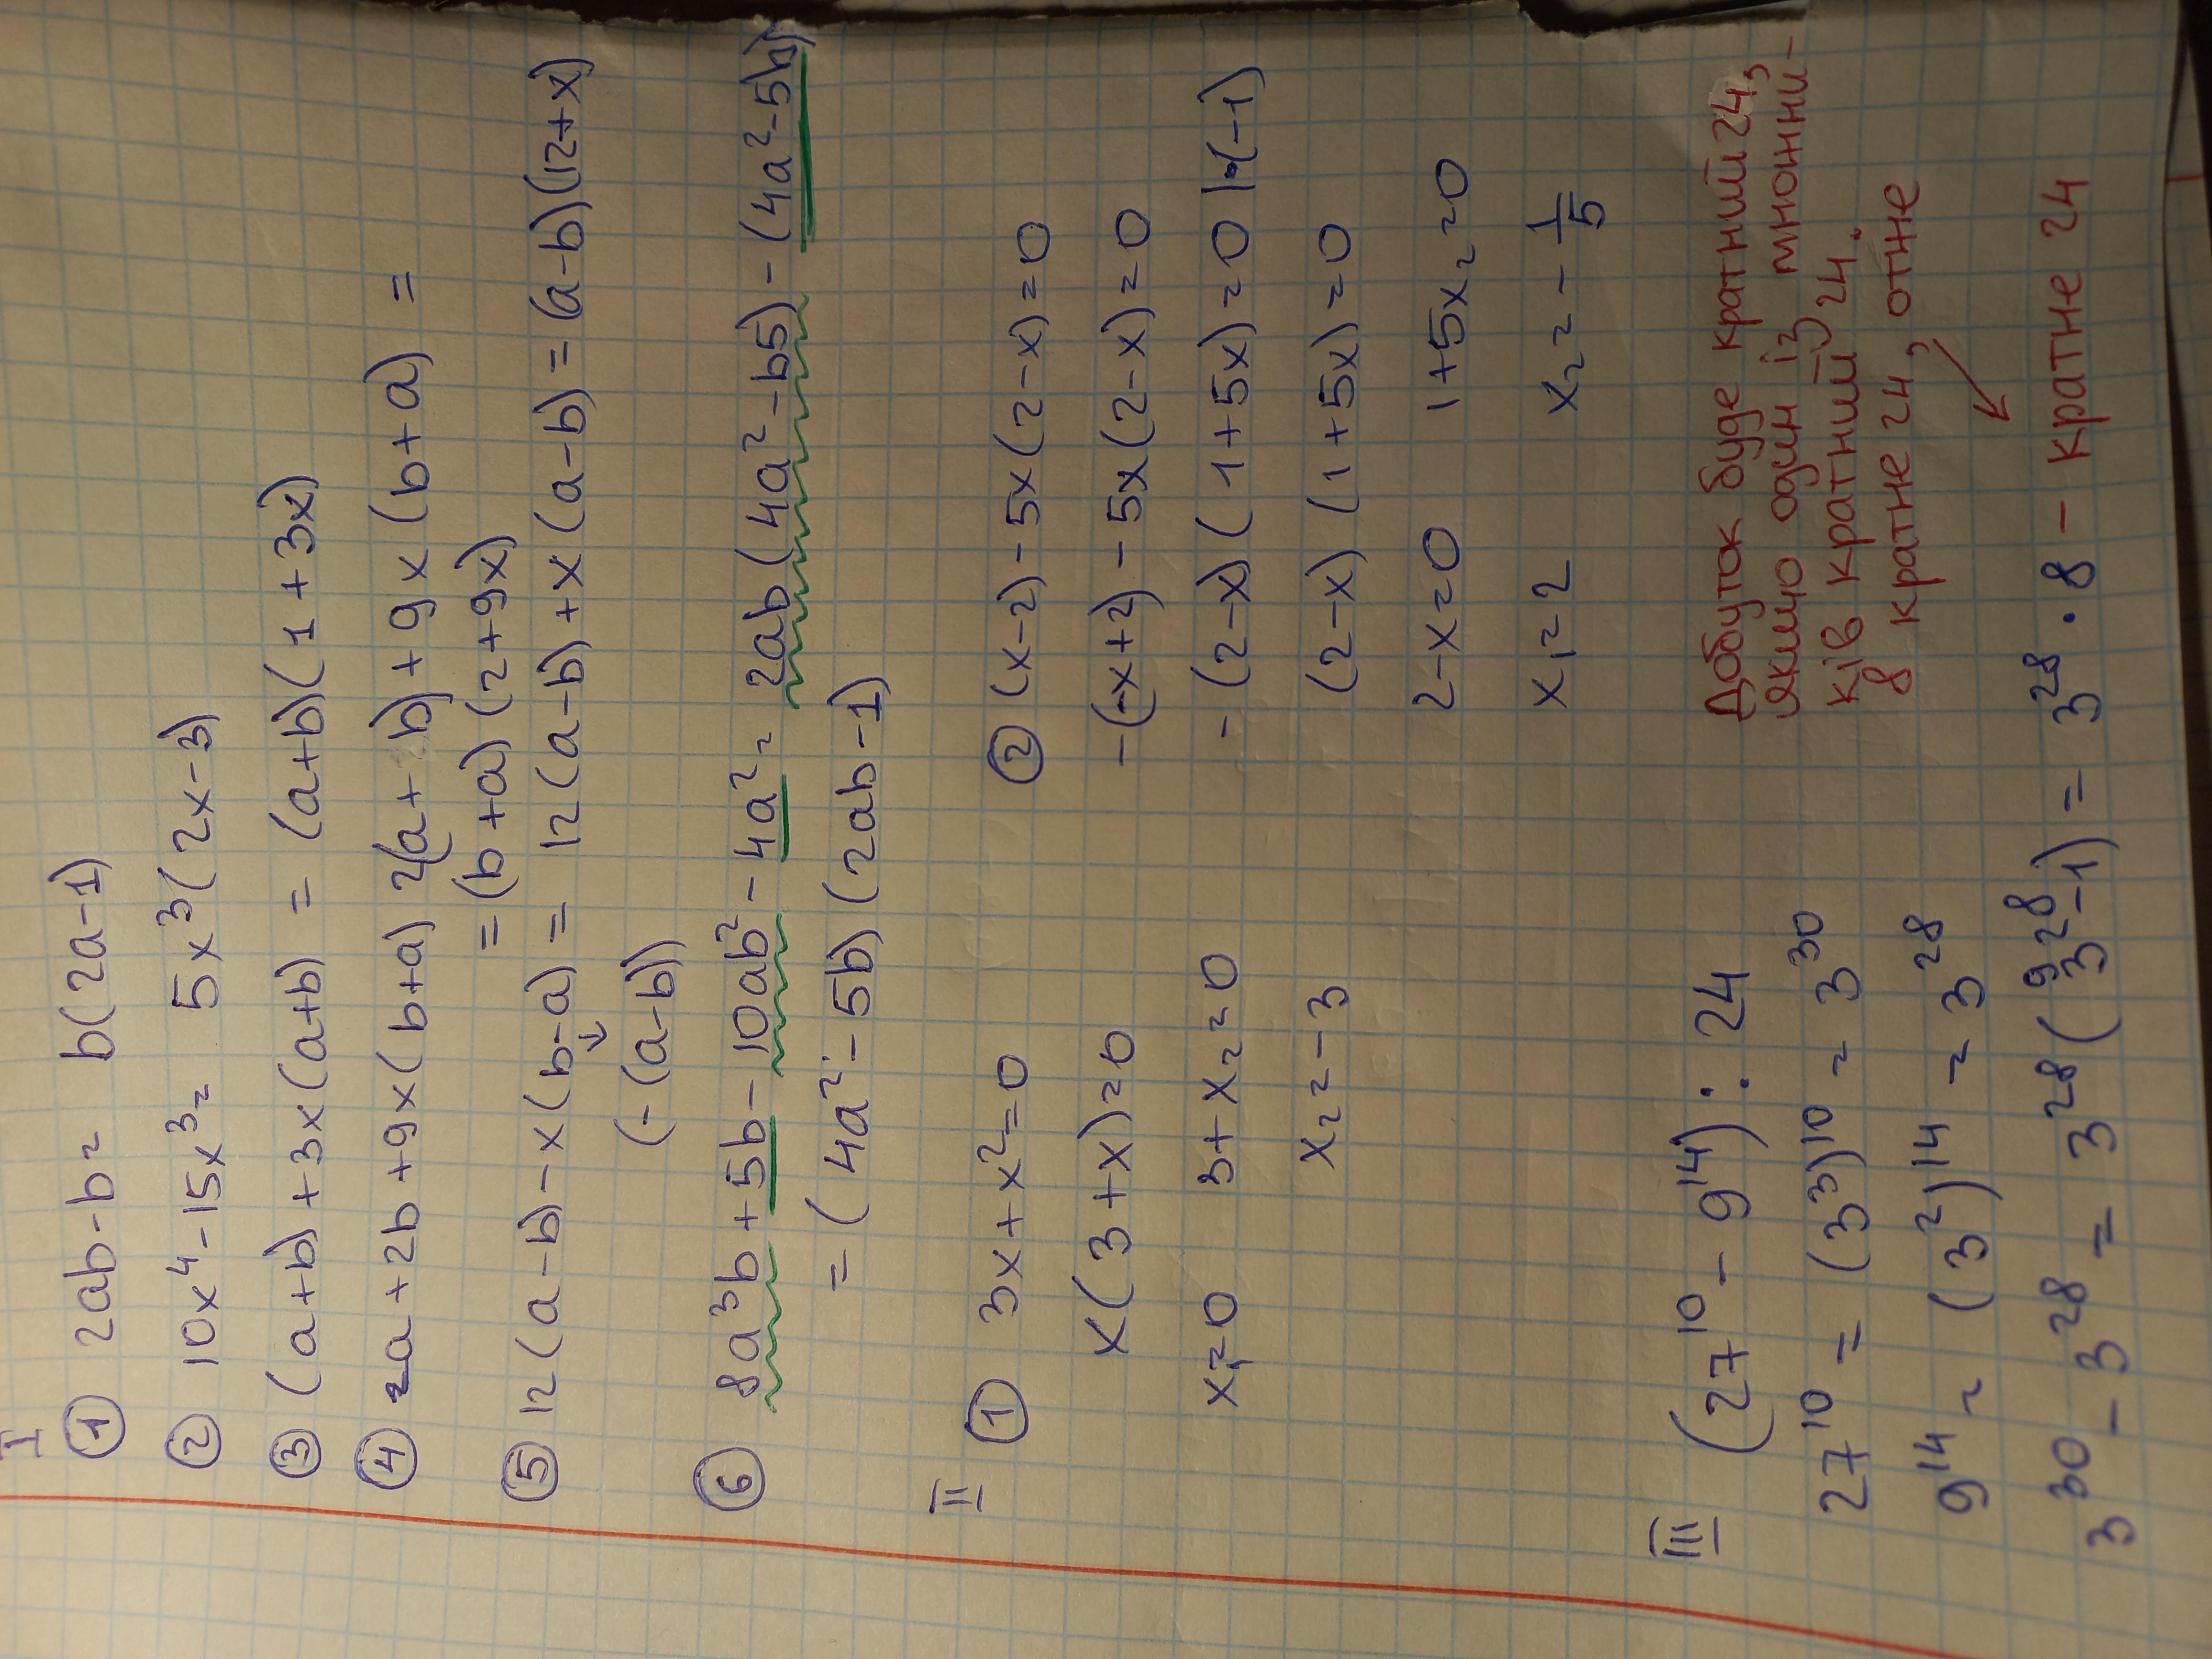 I
① 2ab-b= b(2a-1)
② 10x⁴-15x³= 5x³(2x-3)
③ (a+b)+3x(a+b) = (a+b)(1+3x)
④ 2a+2b+9x(b+a) 2(a+b)+9x(b+a) =
=(b+a)(2+9x)
⑤ 12(a-b)-x(b-a) = 12(a-b)+x(a-b)=(a-b)(12+x)
(-(a-b))
⑥ 8a³b+5b-10ab²-4a²= 2ab(4a²-b5)-(4a²-5b)
=(4a²-5b)(2ab-1)
II ① 3x+x²=0
x(3+x)=0
x₁=0 3+x₂=0
x₂=-3
② (x-2)-5x(2-x)=0
-(-x+2)-5x(2-x)=0
-(2-x)(1+5x)=0 |·(-1)
(2-x)(1+5x)=0
2-x=0 1+5x₂=0
x₁=2 x₂=-1/5
III (27¹⁰-9¹⁴) : 24
27¹⁰ = (3³)¹⁰ = 3³⁰
9¹⁴ = (3²)¹⁴ = 3²⁸
Добуток буде кратний 24,
якщо один із множни-
ків кратний 24.
8 кратне 24, отже
3³⁰-3²⁸ = 3²⁸(3²⁸-1) = 3²⁸·8 - кратне 24
9